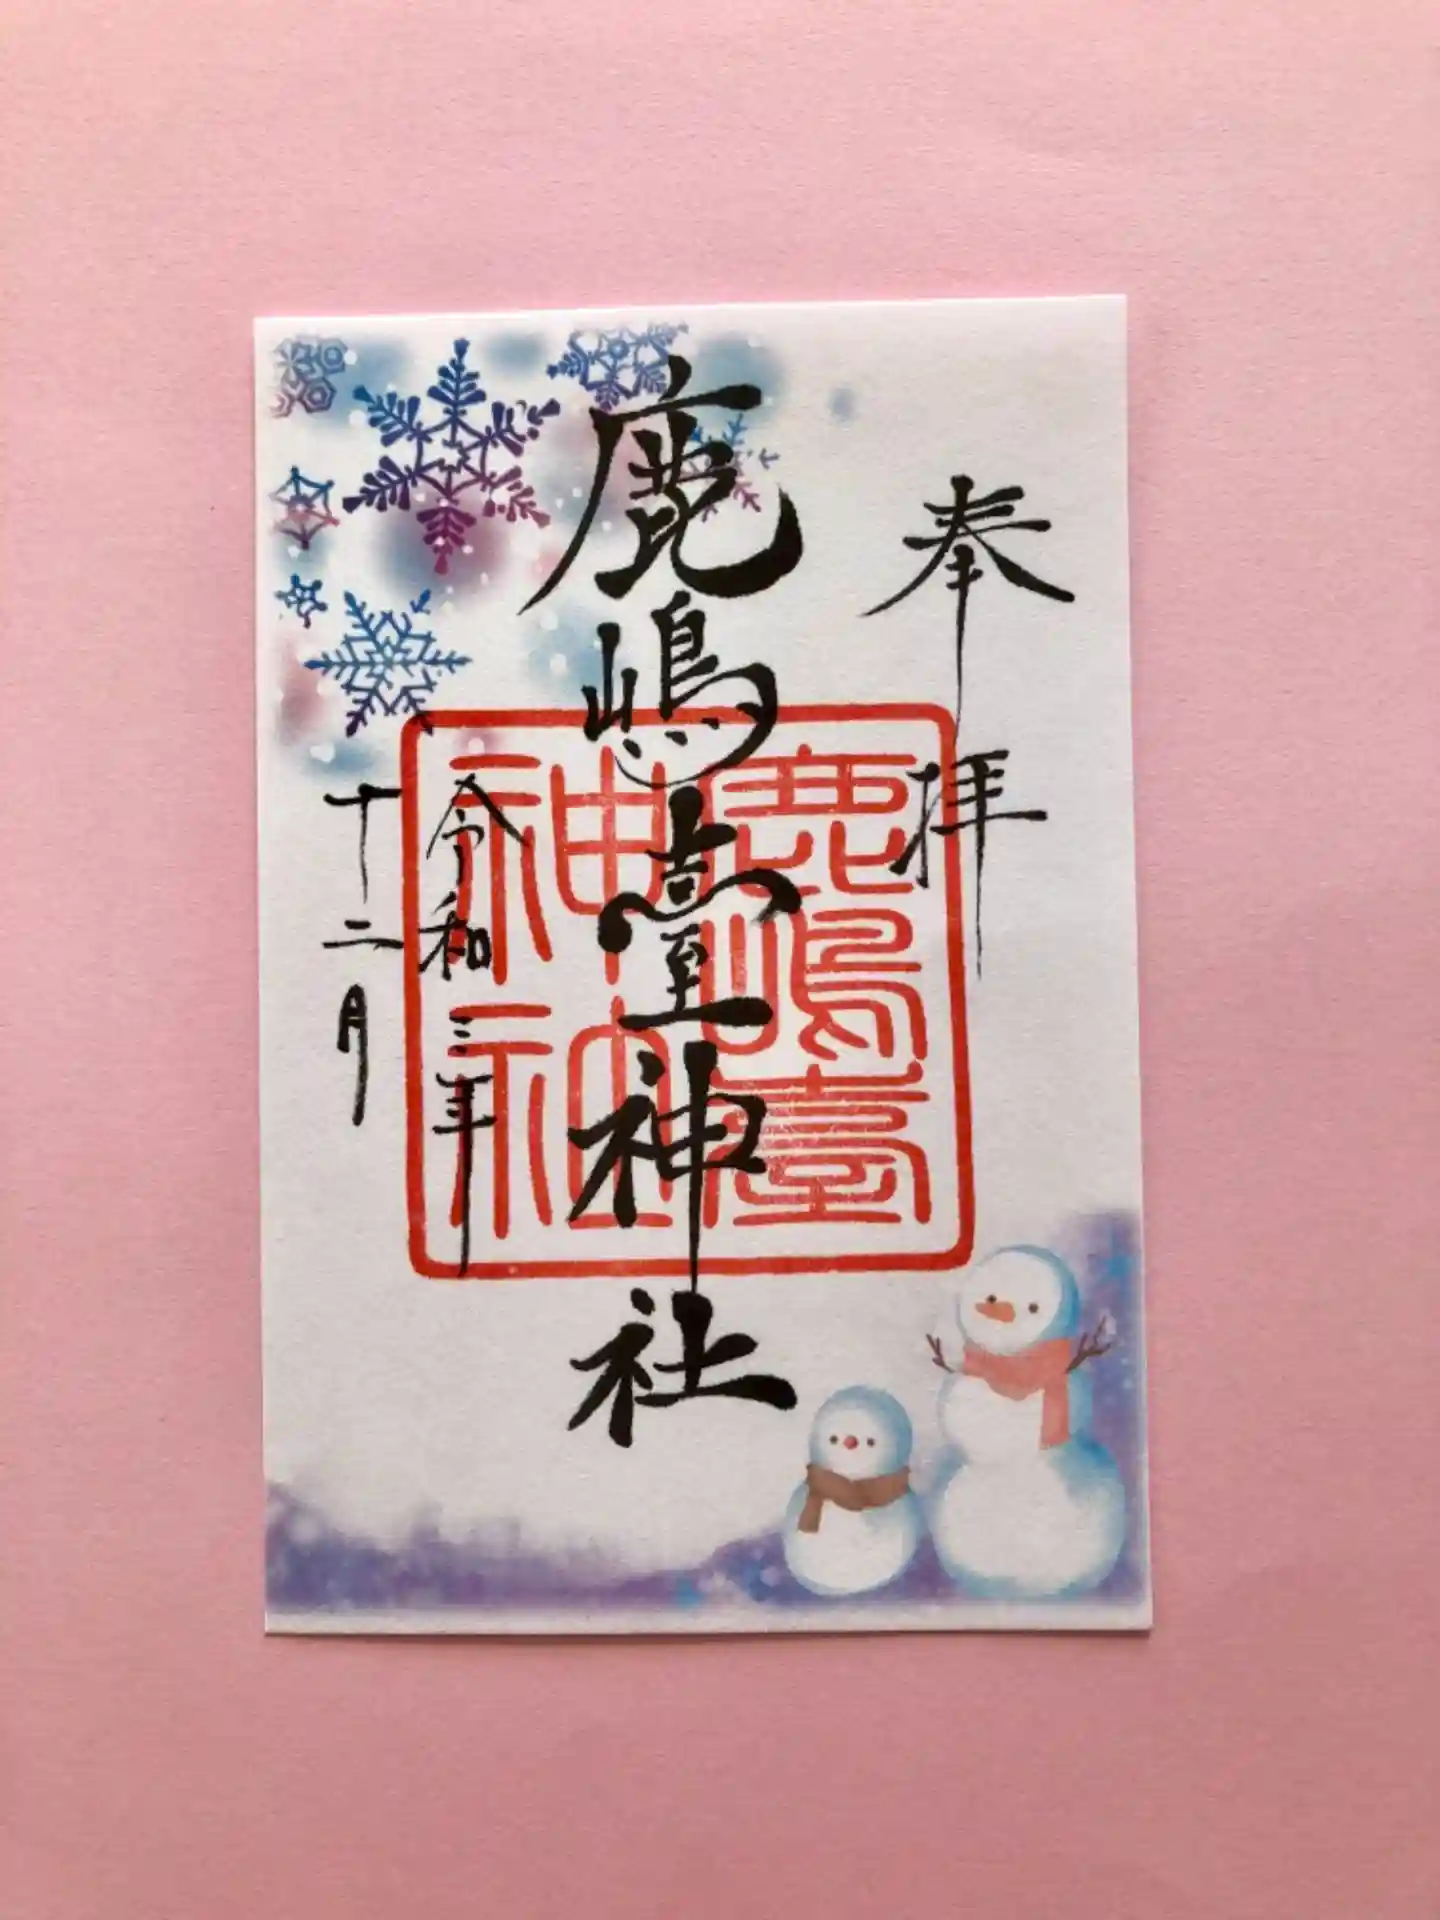 奉拝
鹿嶋臺神社
鹿嶋臺
神社
令和三年
十二月